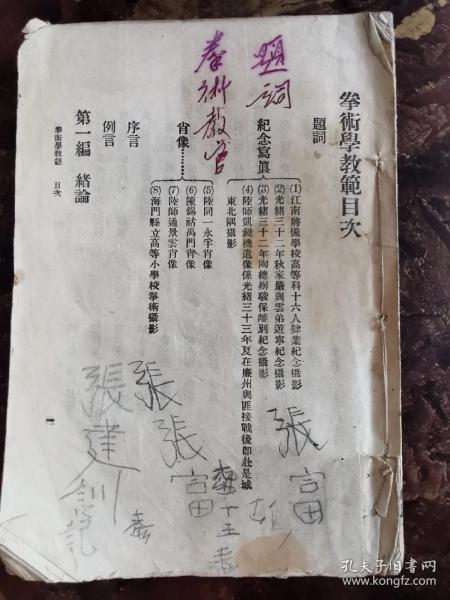 拳術學教範目次
題詞
紀念寫眞
(1)江南將備學校高等科十六人肄業紀念攝影
(2)光緒三十二年秋家嚴與雲弟遊寧紀念攝影
(3)光緒三十二年陶總辦駿保離別紀念攝影
(4)陸師凱鍵機遺像係光緒三十三年夏在廉州與匪接戰後卽赴是城
東北隅攝影
肖像……
(5)陸同一永孚肖像
(6)陳錫祜禹門肖像
(7)陸師通景雲肖像
(8)海門縣立高等小學校拳術攝影
序言
例言
第一編 緒論
拳術學教範 目次
一
題詞
拳術教官
張富田
張富田
十五
張
張建釗記
孔夫子旧书网
book.kongfz.com